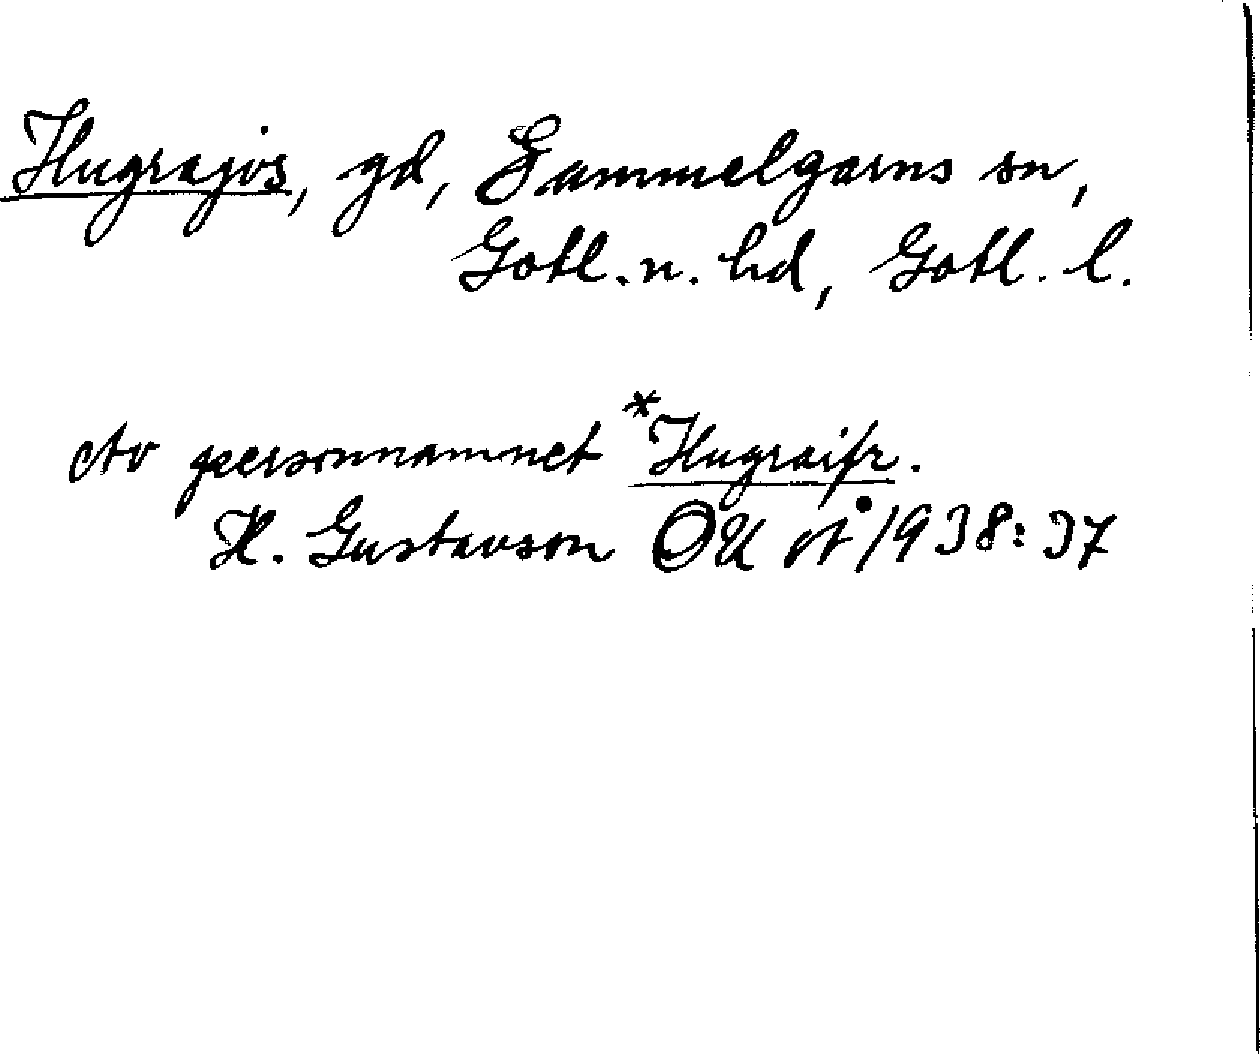 Hugrajvs, gd, Gammelgarns sn,
Gotl. n. hd, Gotl. l.
Av personnamnet *Hugraifr.
H. Gustavson OUÅ 1938:37